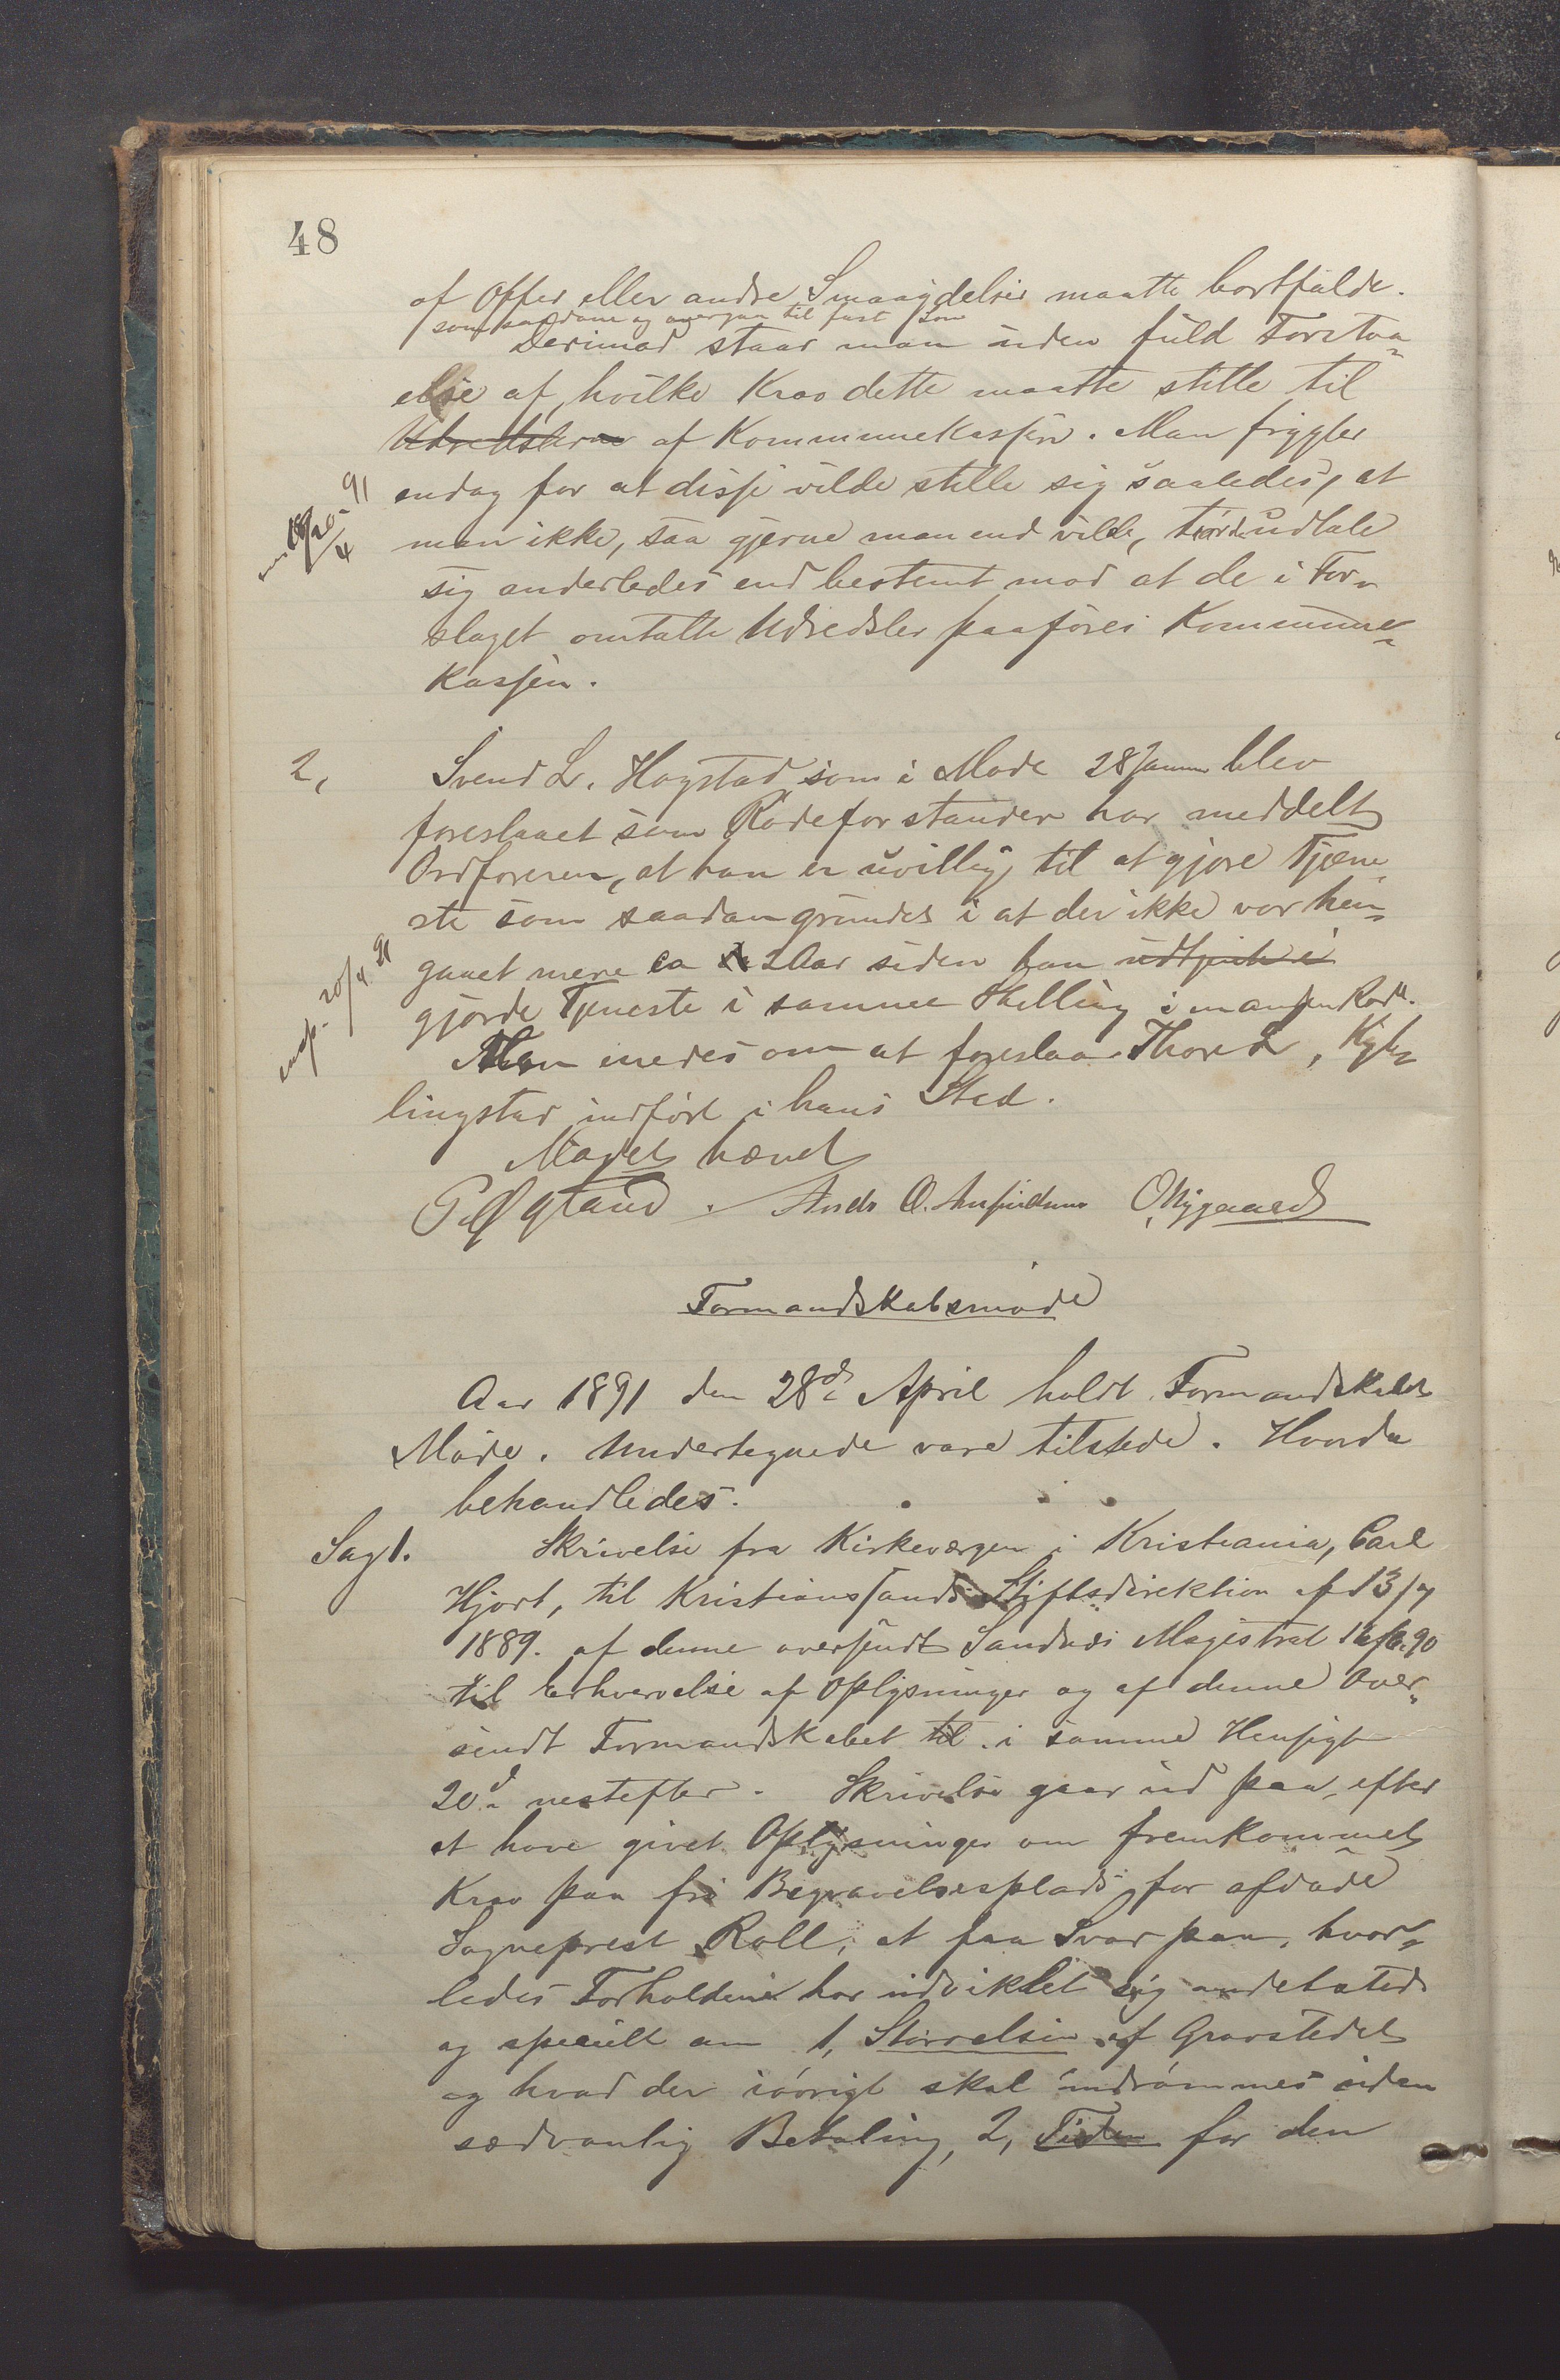 48
af Offer eller andre Smaaydelser maatte bortfalde.
som saadane og overgaa til fast Løn
Derimod staar man uden fuld Forstaa-
else af, hvilke Krav dette maatte stille til
Udredslerne af Kommunekassen. Man frygter
endog for at disse vilde stille sig saaledes, at
man ikke, saa gjerne man end vilde, turde udtale
sig anderledes end bestemt mod at de i For-
slaget omtalte Udredsler paaføres Kommune-
kassen.
2,
Svend L. Hogstad som i Møde 28 Januar blev
foreslaaet som Rodeforstander har meddelt
Ordføreren, at han er uvillig til at gjøre Tjene-
ste som saadan grundet i at der ikke var hen-
gaaet mere ca 2 Aar siden han
gjorde Tjeneste i samme Stilling i
Man enedes om at foreslaa Thore L, Kyl-
lingstad indført i hans Sted.
Mødet hævet
Nygaard
Formandskabsmøde
Aar 1891 den 28de April holdt Formandskabet
Møde. Undertegnede vare tilstede. Hvorda
behandledes.
Sag 1.
Skrivelse fra Kirkeværgen i Kristiania, Carl
Hjort, til Kristianssands Stiftsdirektion af 13/7
1889. af denne oversendt Sandnes Magistrat 90
til Erhvervelse af Oplysninger og af denne Over-
sendt Formandskabet til i samme Hensigt
20de nestefter. Skrivelse gaar ud paa, efter
at have givet Oplysninger om fremkommet
Krav paa fri Begravelsesplads for afdøde
Sogneprest Roll, at faa Svar paa, hvor-
ledes Forholdene har udviklet sig andetsteds
og specielt om 1, Størrelsen af Gravstedet
og hvad der iøvrigt skal indrømmes uden
sædvanlig Betaling, 2, Tiden for den